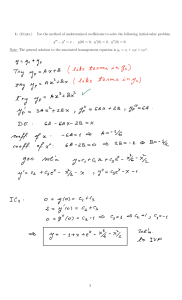 1. (10 pts.) Use the method of undetermined coefficients to solve the following initial-value problem
y''' − y'' = x ; y(0) = 0, y'(0) = 2, y''(0) = 0.
Note: The general solution to the associated homogeneous equation is y_c = c₁ + c₂x + c₃eˣ.
y = y_c + y_p
Try y_p = Ax + B (like terms in y_c)
Try y_p = Ax² + Bx (like terms in y_c)
try y_p = Ax³ + Bx² ✓
y_p' = 3Ax² + 2Bx , y_p'' = 6Ax + 2B , y_p''' = 6A
DE : 6A − 6Ax − 2B = x
coeff of x : −6A = 1 ⇒ A = −1/6
coeff of x⁰ : 6A − 2B = 0 ⇒ 2B = −1 ⇒ B = −1/2
gen sol'n y = c₁ + c₂x + c₃eˣ − x³/6 − x²/2
y' = c₂ + c₃eˣ − x²/2 − x , y'' = c₃eˣ − x − 1
ICs : 0 = y(0) = c₁ + c₃
2 = y'(0) = c₂ + c₃
0 = y''(0) = c₃ − 1 ⇒ c₃ = 1 ⇒ c₂ = 1, c₁ = −1
⇒ y = −1 + x + eˣ − x³/6 − x²/2 Sol'n to IVP